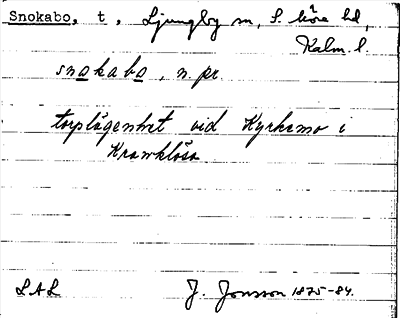 Snokabo, t, Ljungby sn, S. Möre hd,
Kalm. l.
snokabo, n. pr.
torplägenhet vid Kyrkemo i
LAL J. Jonsson 1875-84.